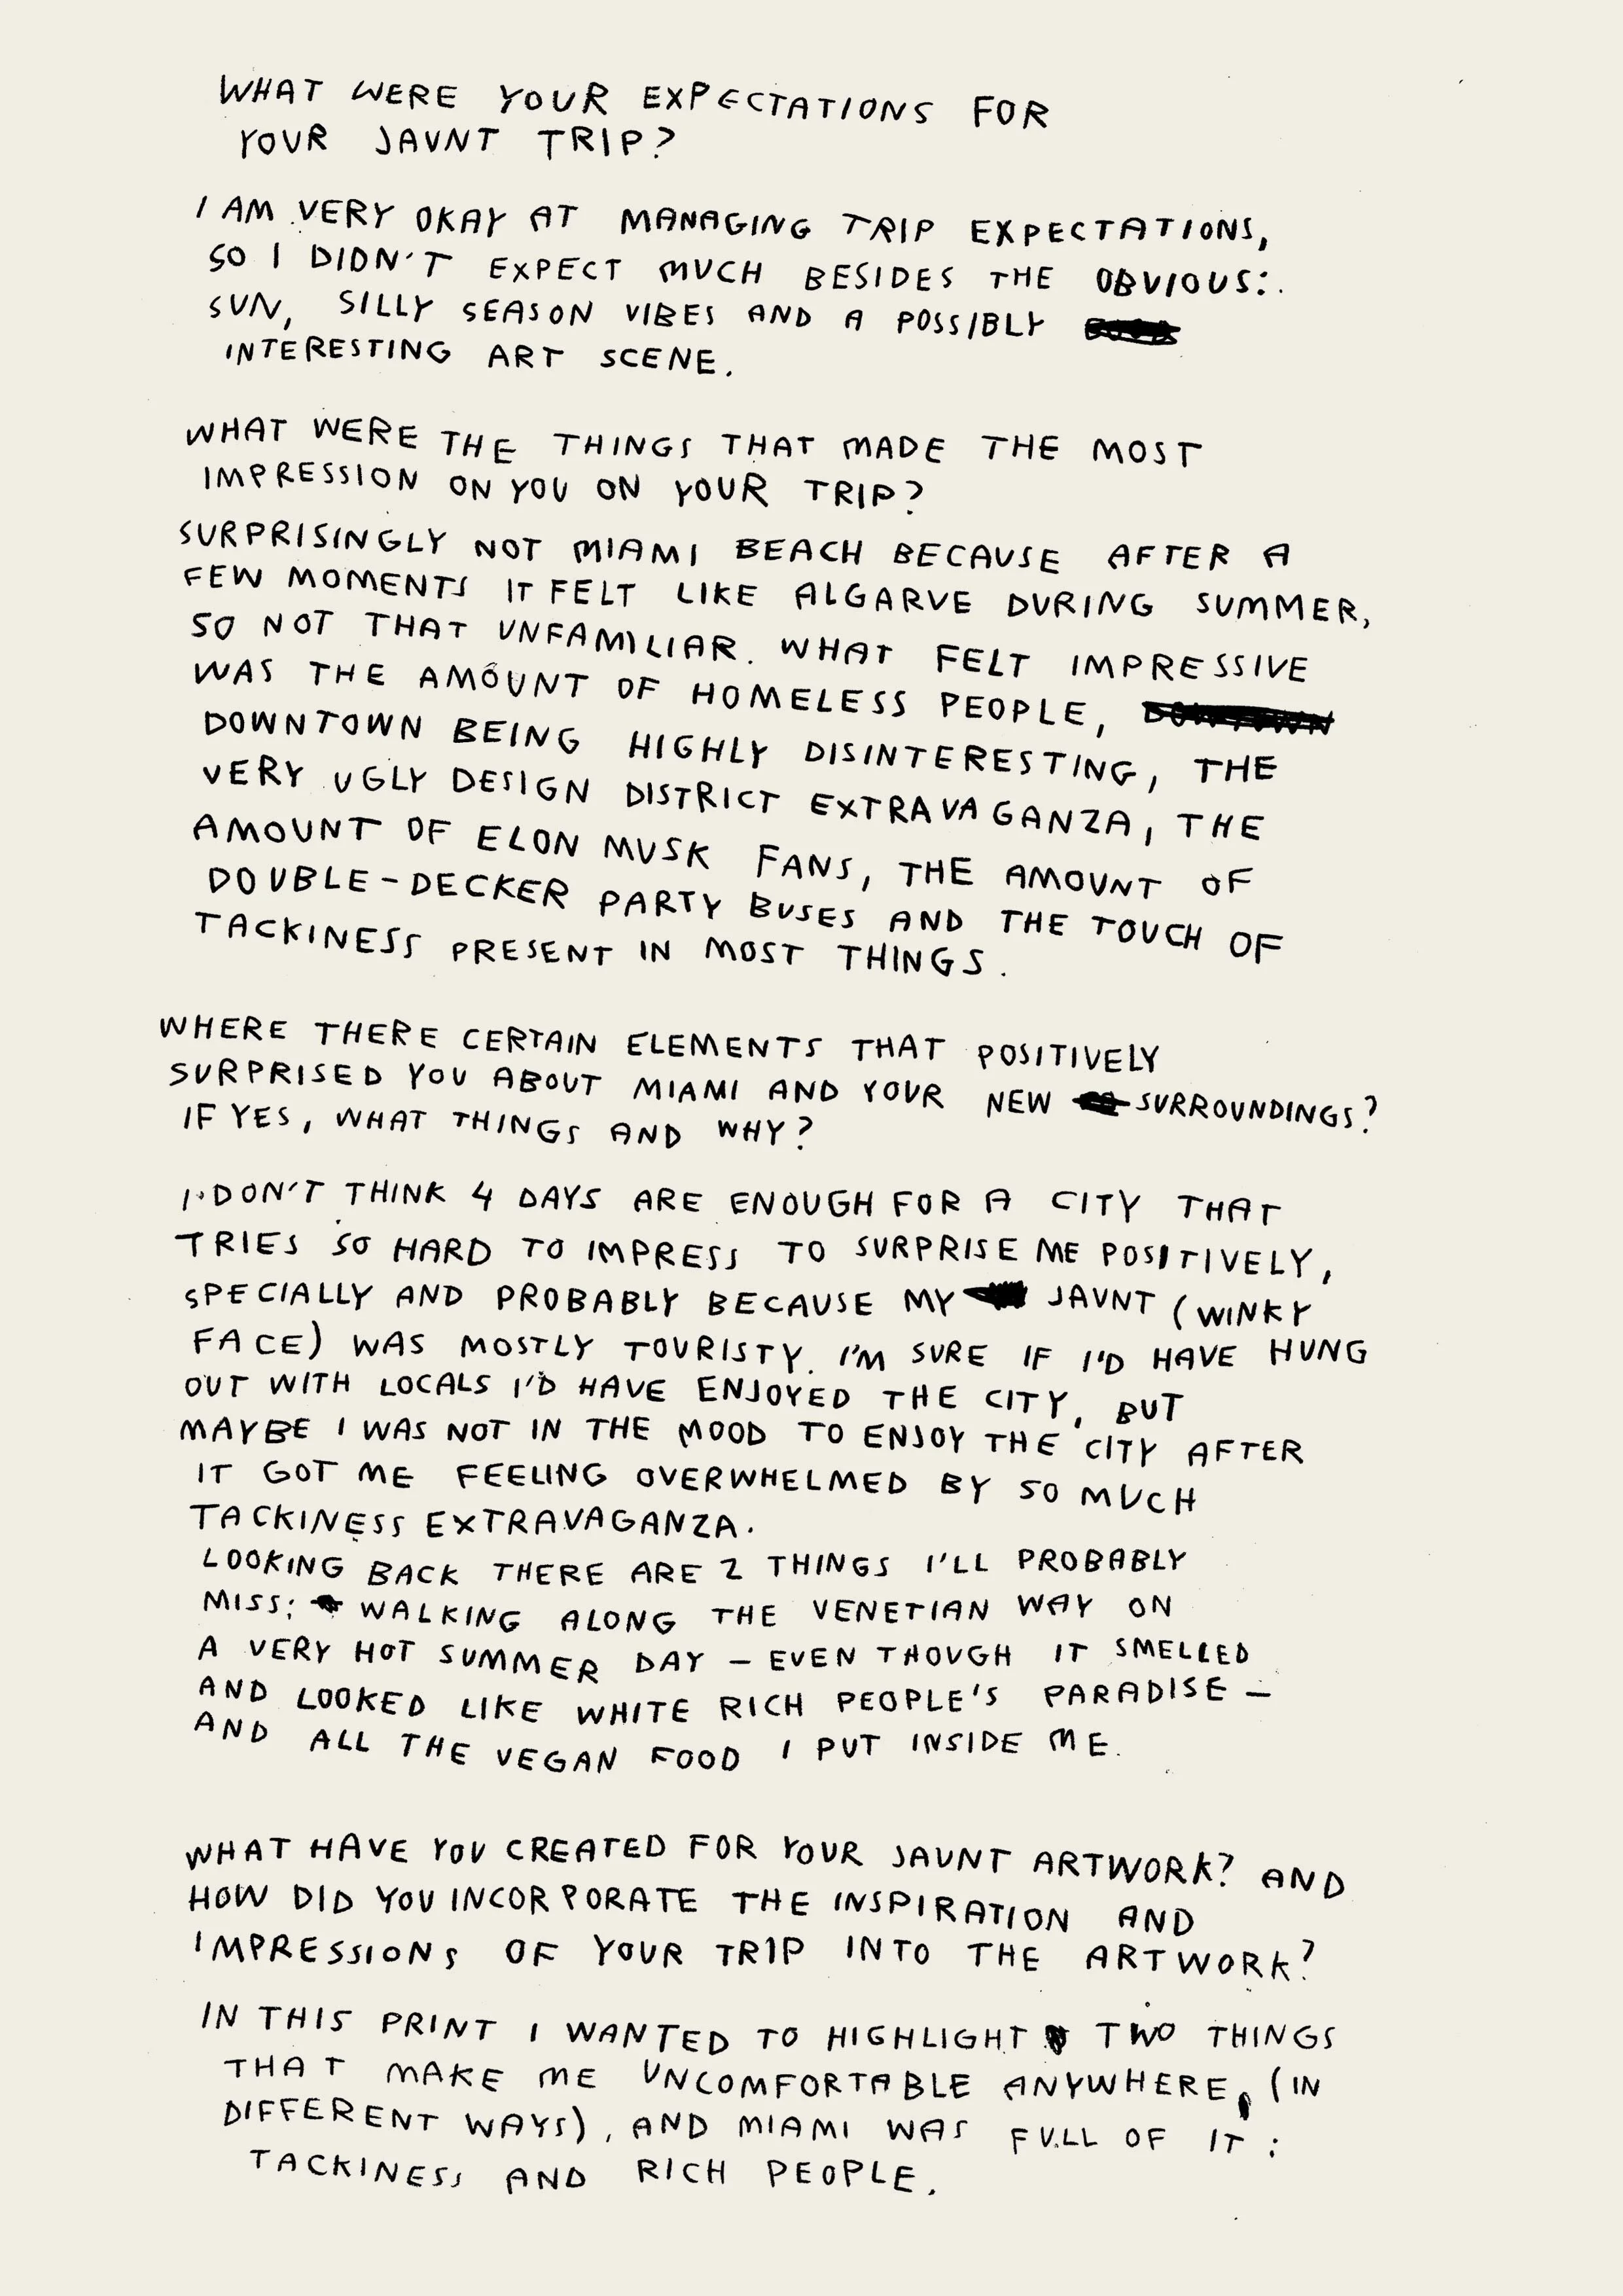 WHAT WERE YOUR EXPECTATIONS FOR
YOUR JAUNT TRIP?
I AM VERY OKAY AT MANAGING TRIP EXPECTATIONS,
SO I DIDN'T EXPECT MUCH BESIDES THE OBVIOUS:
SUN, SILLY SEASON VIBES AND A POSSIBLY
INTERESTING ART SCENE.
WHAT WERE THE THINGS THAT MADE THE MOST
IMPRESSION ON YOU ON YOUR TRIP?
SURPRISINGLY NOT MIAMI BEACH BECAUSE AFTER A
FEW MOMENTS IT FELT LIKE ALGARVE DURING SUMMER,
SO NOT THAT UNFAMILIAR. WHAT FELT IMPRESSIVE
WAS THE AMOUNT OF HOMELESS PEOPLE,
DOWNTOWN BEING HIGHLY DISINTERESTING, THE
VERY UGLY DESIGN DISTRICT EXTRAVAGANZA, THE
AMOUNT OF ELON MUSK FANS, THE AMOUNT OF
DOUBLE-DECKER PARTY BUSES AND THE TOUCH OF
TACKINESS PRESENT IN MOST THINGS.
WHERE THERE CERTAIN ELEMENTS THAT POSITIVELY
SURPRISED YOU ABOUT MIAMI AND YOUR NEW SURROUNDINGS?
IF YES, WHAT THINGS AND WHY?
I DON'T THINK 4 DAYS ARE ENOUGH FOR A CITY THAT
TRIES SO HARD TO IMPRESS TO SURPRISE ME POSITIVELY,
SPECIALLY AND PROBABLY BECAUSE MY JAUNT (WINKY
FACE) WAS MOSTLY TOURISTY. I'M SURE IF I'D HAVE HUNG
OUT WITH LOCALS I'D HAVE ENJOYED THE CITY, BUT
MAYBE I WAS NOT IN THE MOOD TO ENJOY THE CITY AFTER
IT GOT ME FEELING OVERWHELMED BY SO MUCH
TACKINESS EXTRAVAGANZA.
LOOKING BACK THERE ARE 2 THINGS I'LL PROBABLY
MISS: WALKING ALONG THE VENETIAN WAY ON
A VERY HOT SUMMER DAY – EVEN THOUGH IT SMELLED
AND LOOKED LIKE WHITE RICH PEOPLE'S PARADISE –
AND ALL THE VEGAN FOOD I PUT INSIDE ME.
WHAT HAVE YOU CREATED FOR YOUR JAUNT ARTWORK? AND
HOW DID YOU INCORPORATE THE INSPIRATION AND
IMPRESSIONS OF YOUR TRIP INTO THE ARTWORK?
IN THIS PRINT I WANTED TO HIGHLIGHT TWO THINGS
THAT MAKE ME UNCOMFORTABLE ANYWHERE, (IN
DIFFERENT WAYS), AND MIAMI WAS FULL OF IT:
TACKINESS AND RICH PEOPLE.